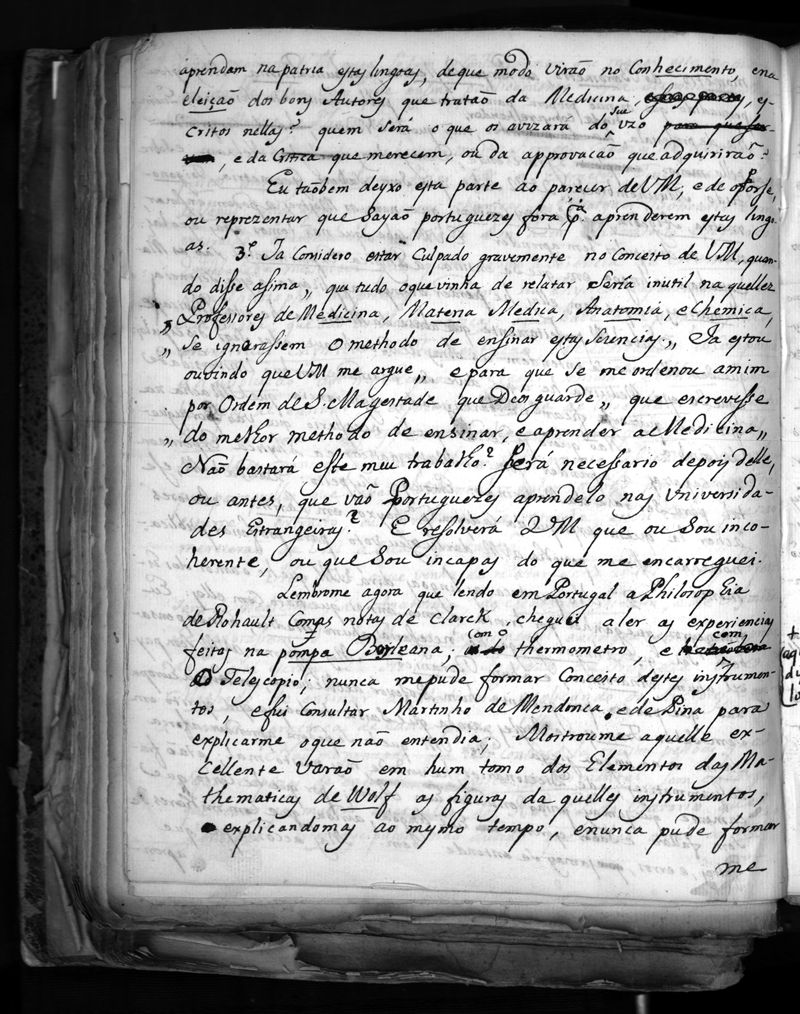 aprendam na patria estas lingoas, deque modo virão no Conhecimento, ena
eleição dos bons Autores que tratão da Medicina, es-
critos nellas? quem será o que os avizará do seu uzo
, e da Critica que merecem, ou da approvacaõ que adquirirão?
Eu taõbem deyxo esta parte ao parecer de VM, e de opporse,
ou reprezentar que Sayaõ portuguezes fora pa. aprenderem estas lingo-
as. 3º. Ja Considero estar Culpado gravemente no Conceito de VM, quan-
do disse assima,, que tudo oque vinha de relatar Seria inutil na quelles
,, Professores de Medicina, Materia Medica, Anatomia, e Chemica,
,, Se ignorassem o methodo de ensinar estas Sciencias,, Ja estou
ouvindo que VM me argue,, e para que se me ordenou amim
por Ordem de S. Magestade que Deos guarde,, que escrevesse
,, do melhor methodo de ensinar, e aprender a Medicina,,
Naõ bastará este meu trabalho? Será necessario depois delle,
ou antes, que vaõ Portuguezes aprendelo nas Universida-
des Estrangeiras? E resolverá VM que ou Sou inco-
herente, ou que Sou incapas do que me encarreguei.
Lembrome agora que lendo em Portugal a Philosophia
de Rohault Com as notas de Clarck, cheguei a ler as experiencias
feitas na pompa Boyleana; com o thermometro, e com
o Telescopio; nunca mepude formar Conceito destes instrumen-
tos, efui Consultar Martinho de Mendonca, ede Pina para
explicarme oque não entendia; Mostroume aquelle ex-
cellente Varaõ em hum tomo dos Elementos das Ma-
thematicas de Wolf as figuras da quelles instrumentos,
explicandomas ao mesmo tempo, enunca pude formar
me